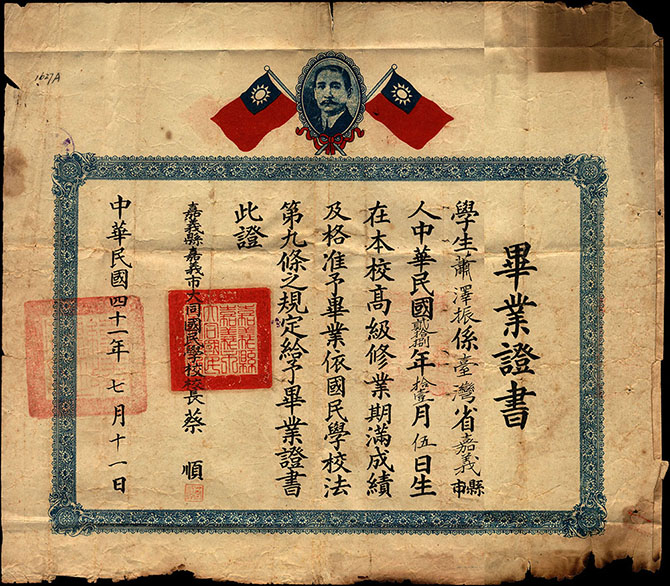 1627A
畢業證書
學生蕭澤振係臺灣省嘉義縣市
人中華民國貳拾捌年拾壹月伍日生
在本校高級修業期滿成績
及格准予畢業依國民學校法
第九條之規定給予畢業證書
此證
嘉義縣嘉義市大同國民學校校長蔡順
中華民國四十一年七月十一日